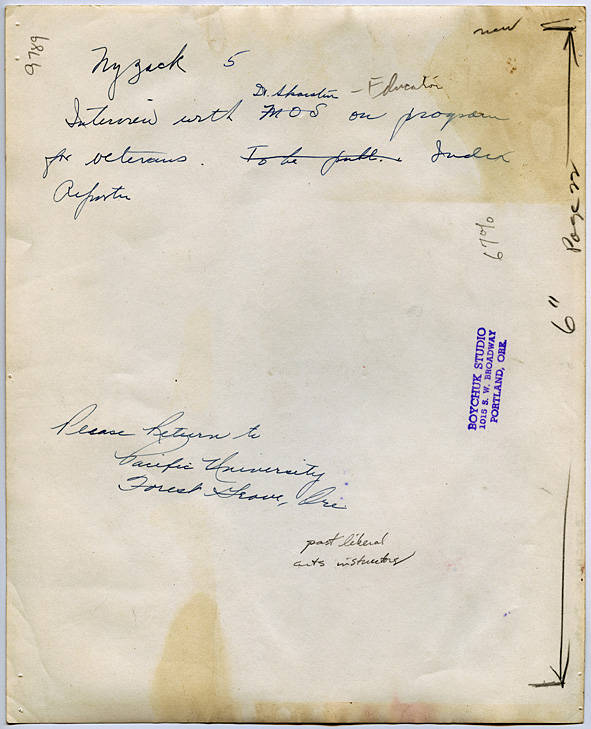 9789
new
Nyzack 5
Dr. - Educator
Interview with MOS on program
for veterans. To be publ. Index
Reporter
67%
Page 22
6"
BOYCHUK STUDIO
1015 S. W. BROADWAY
PORTLAND, ORE
Please Return to
Pacific University
Forest Grove, Ore
past liberal
arts instructor